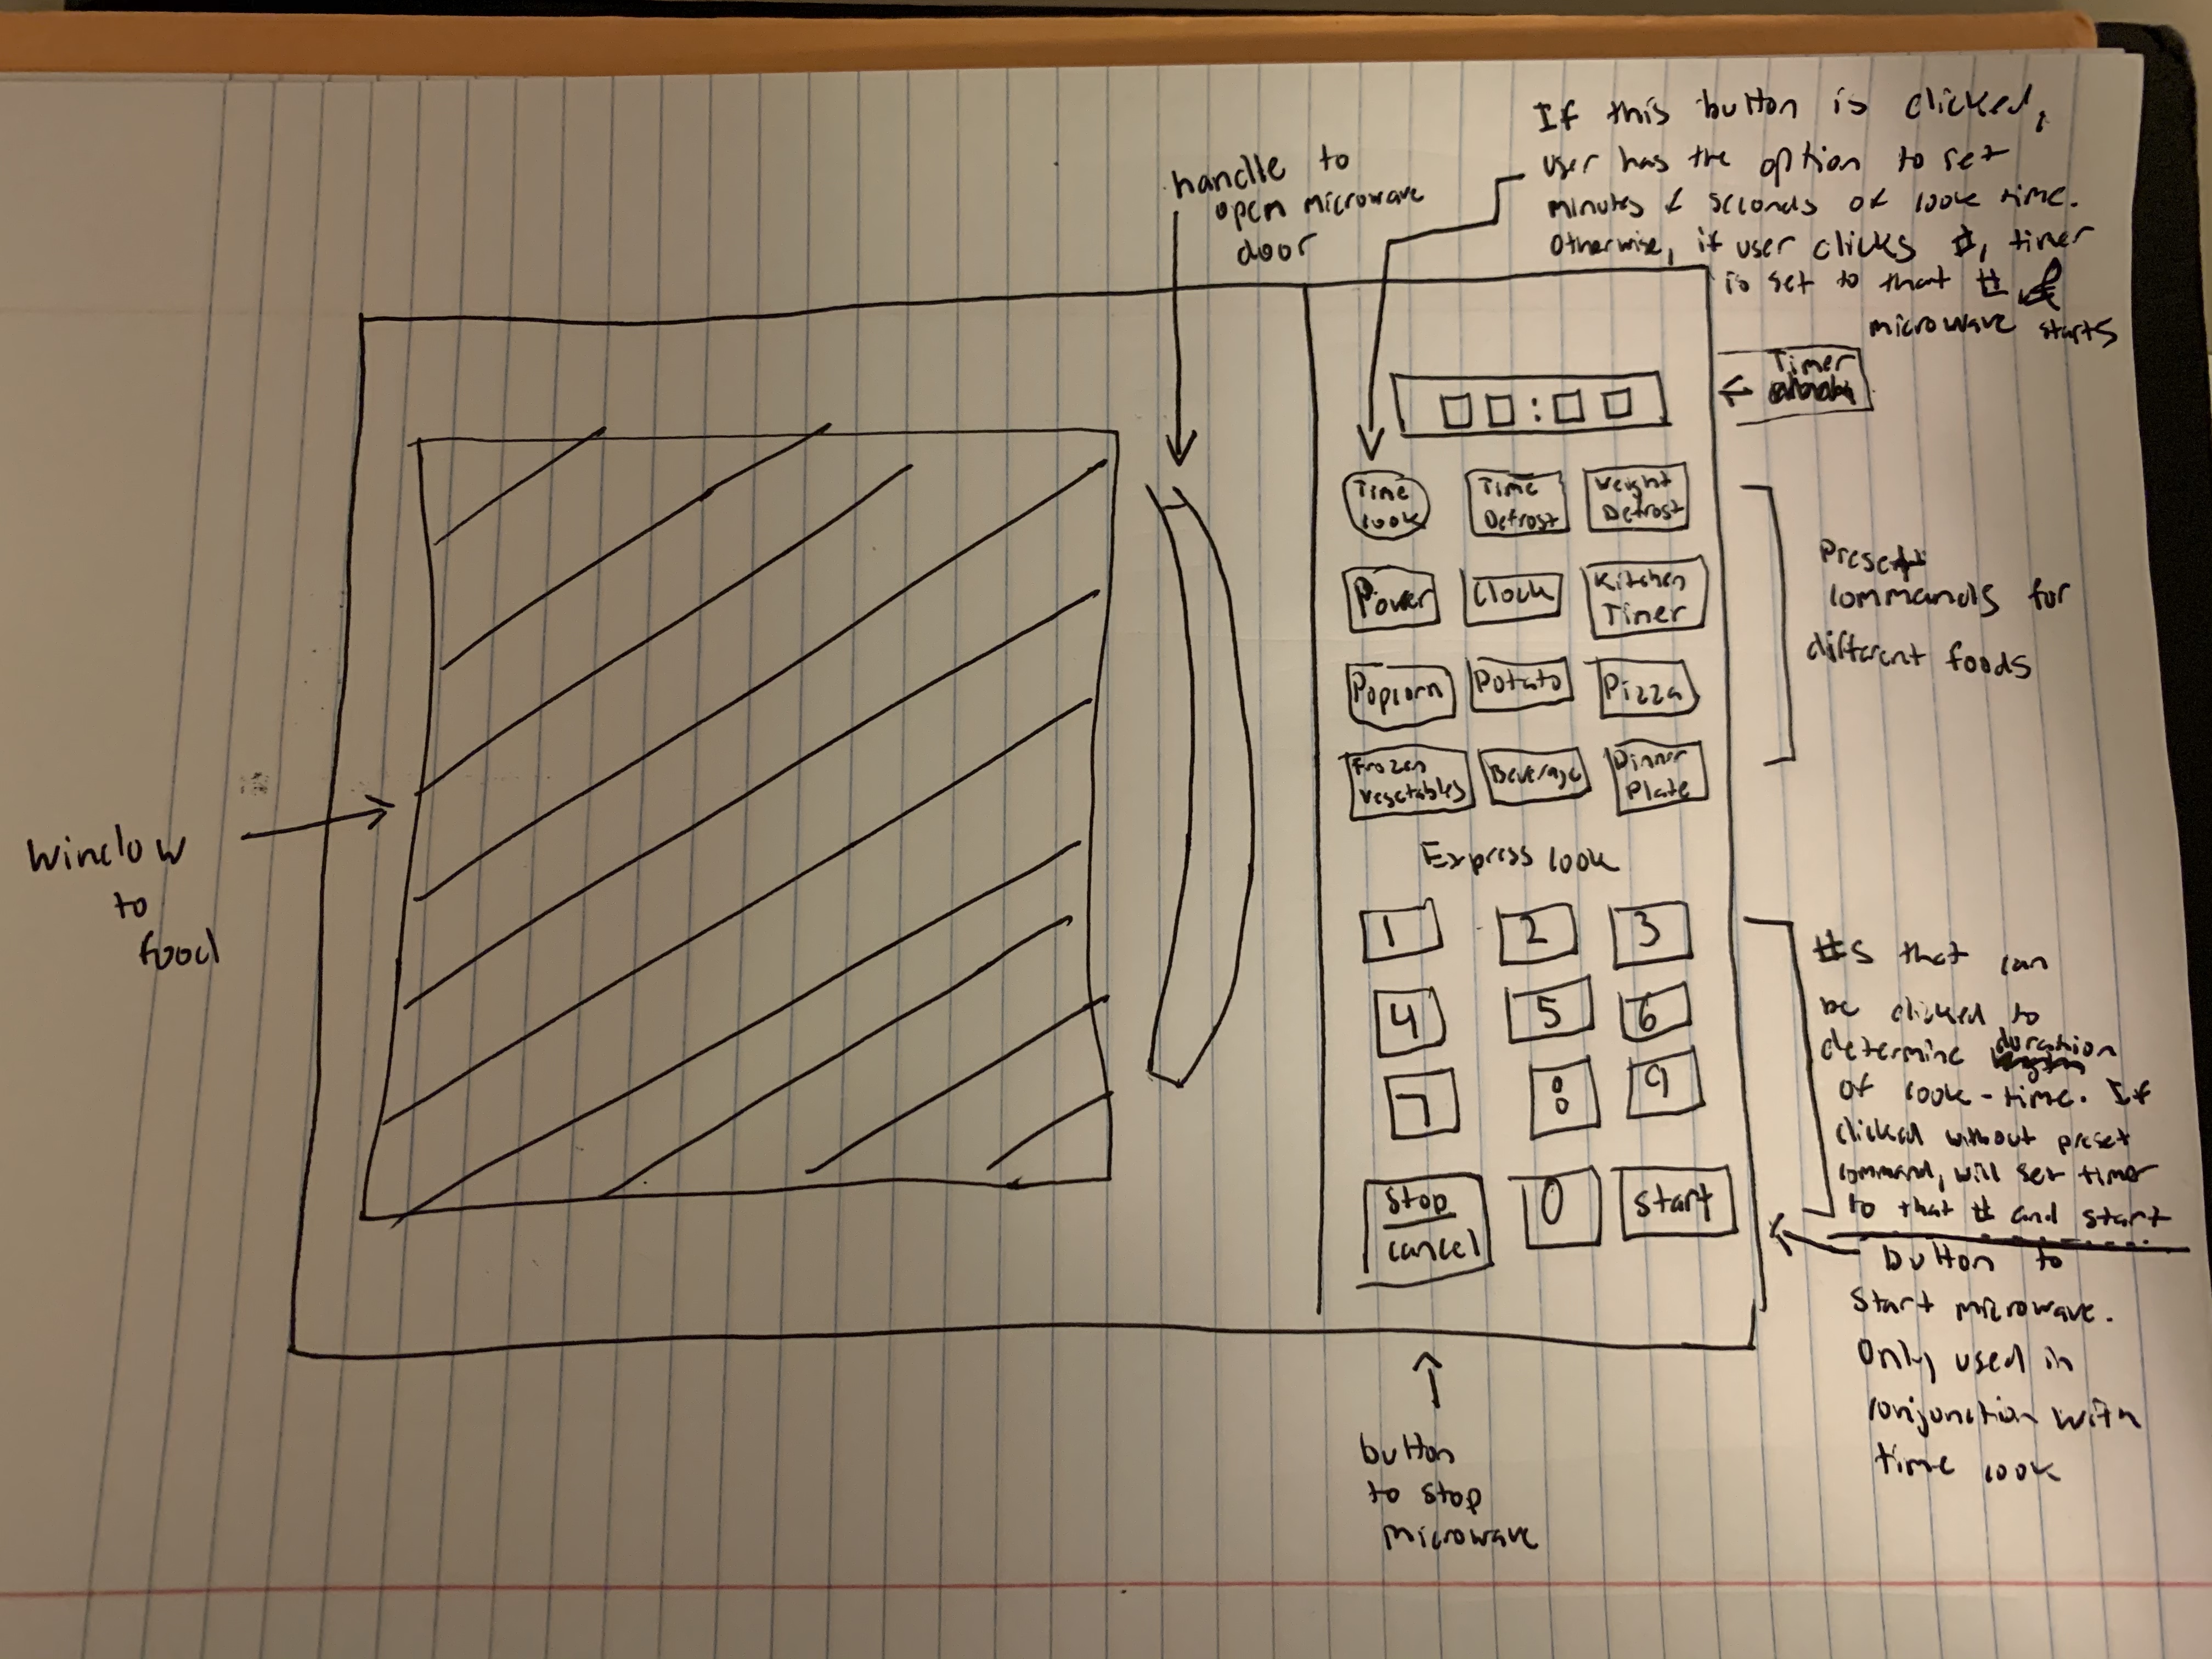 If this button is clicked,
user has the option to set
minutes & seconds of cook time.
Otherwise, if user clicks #, timer
is set to that # &
microwave starts
handle to
open microwave
door
Timer
Time
Cook
Time
Defrost
Weight
Defrost
Power
Clock
Kitchen
Timer
Popcorn
Potato
Pizza
Frozen
Vegetables
Beverage
Dinner
Plate
Preset
commands for
different foods
Window
to
food
Express Cook
1 2 3
4 5 6
7 8 9
Stop
cancel
0
Start
#s that can
be clicked to
determine duration
of cook-time. If
clicked without preset
command, will set timer
to that # and start
button to
Start microwave.
Only used in
conjunction with
time cook
button
to stop
microwave